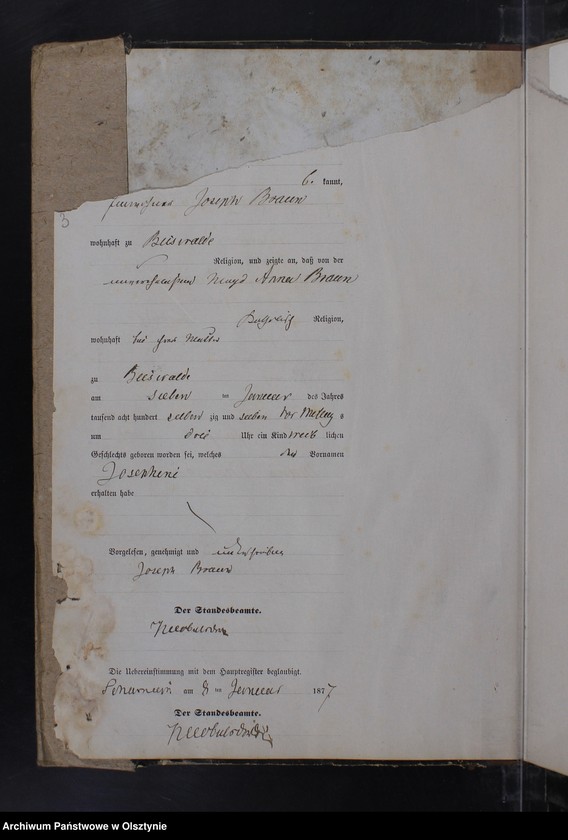 3
be kannt,
Joseph Braun
wohnhaft zu Beiswalde
Religion, und zeigte an, daß von der
unverehelichten Magd Anna Braun
katholisch Religion,
wohnhaft bei Mutter
zu Beiswalde
am sieben ten Januar des Jahres
tausend acht hundert sieben zig und sieben Vor Mittag s
um drei Uhr ein Kind weib lichen
Geschlechts geboren worden sei, welches den Vornamen
Josephine
erhalten habe
Vorgelesen, genehmigt und unterschrieben
Joseph Braun
Der Standesbeamte.
Die Uebereinstimmung mit dem Hauptregister beglaubigt.
am 8 ten Januar 1877
Der Standesbeamte.
Archiwum Państwowe w Olsztynie